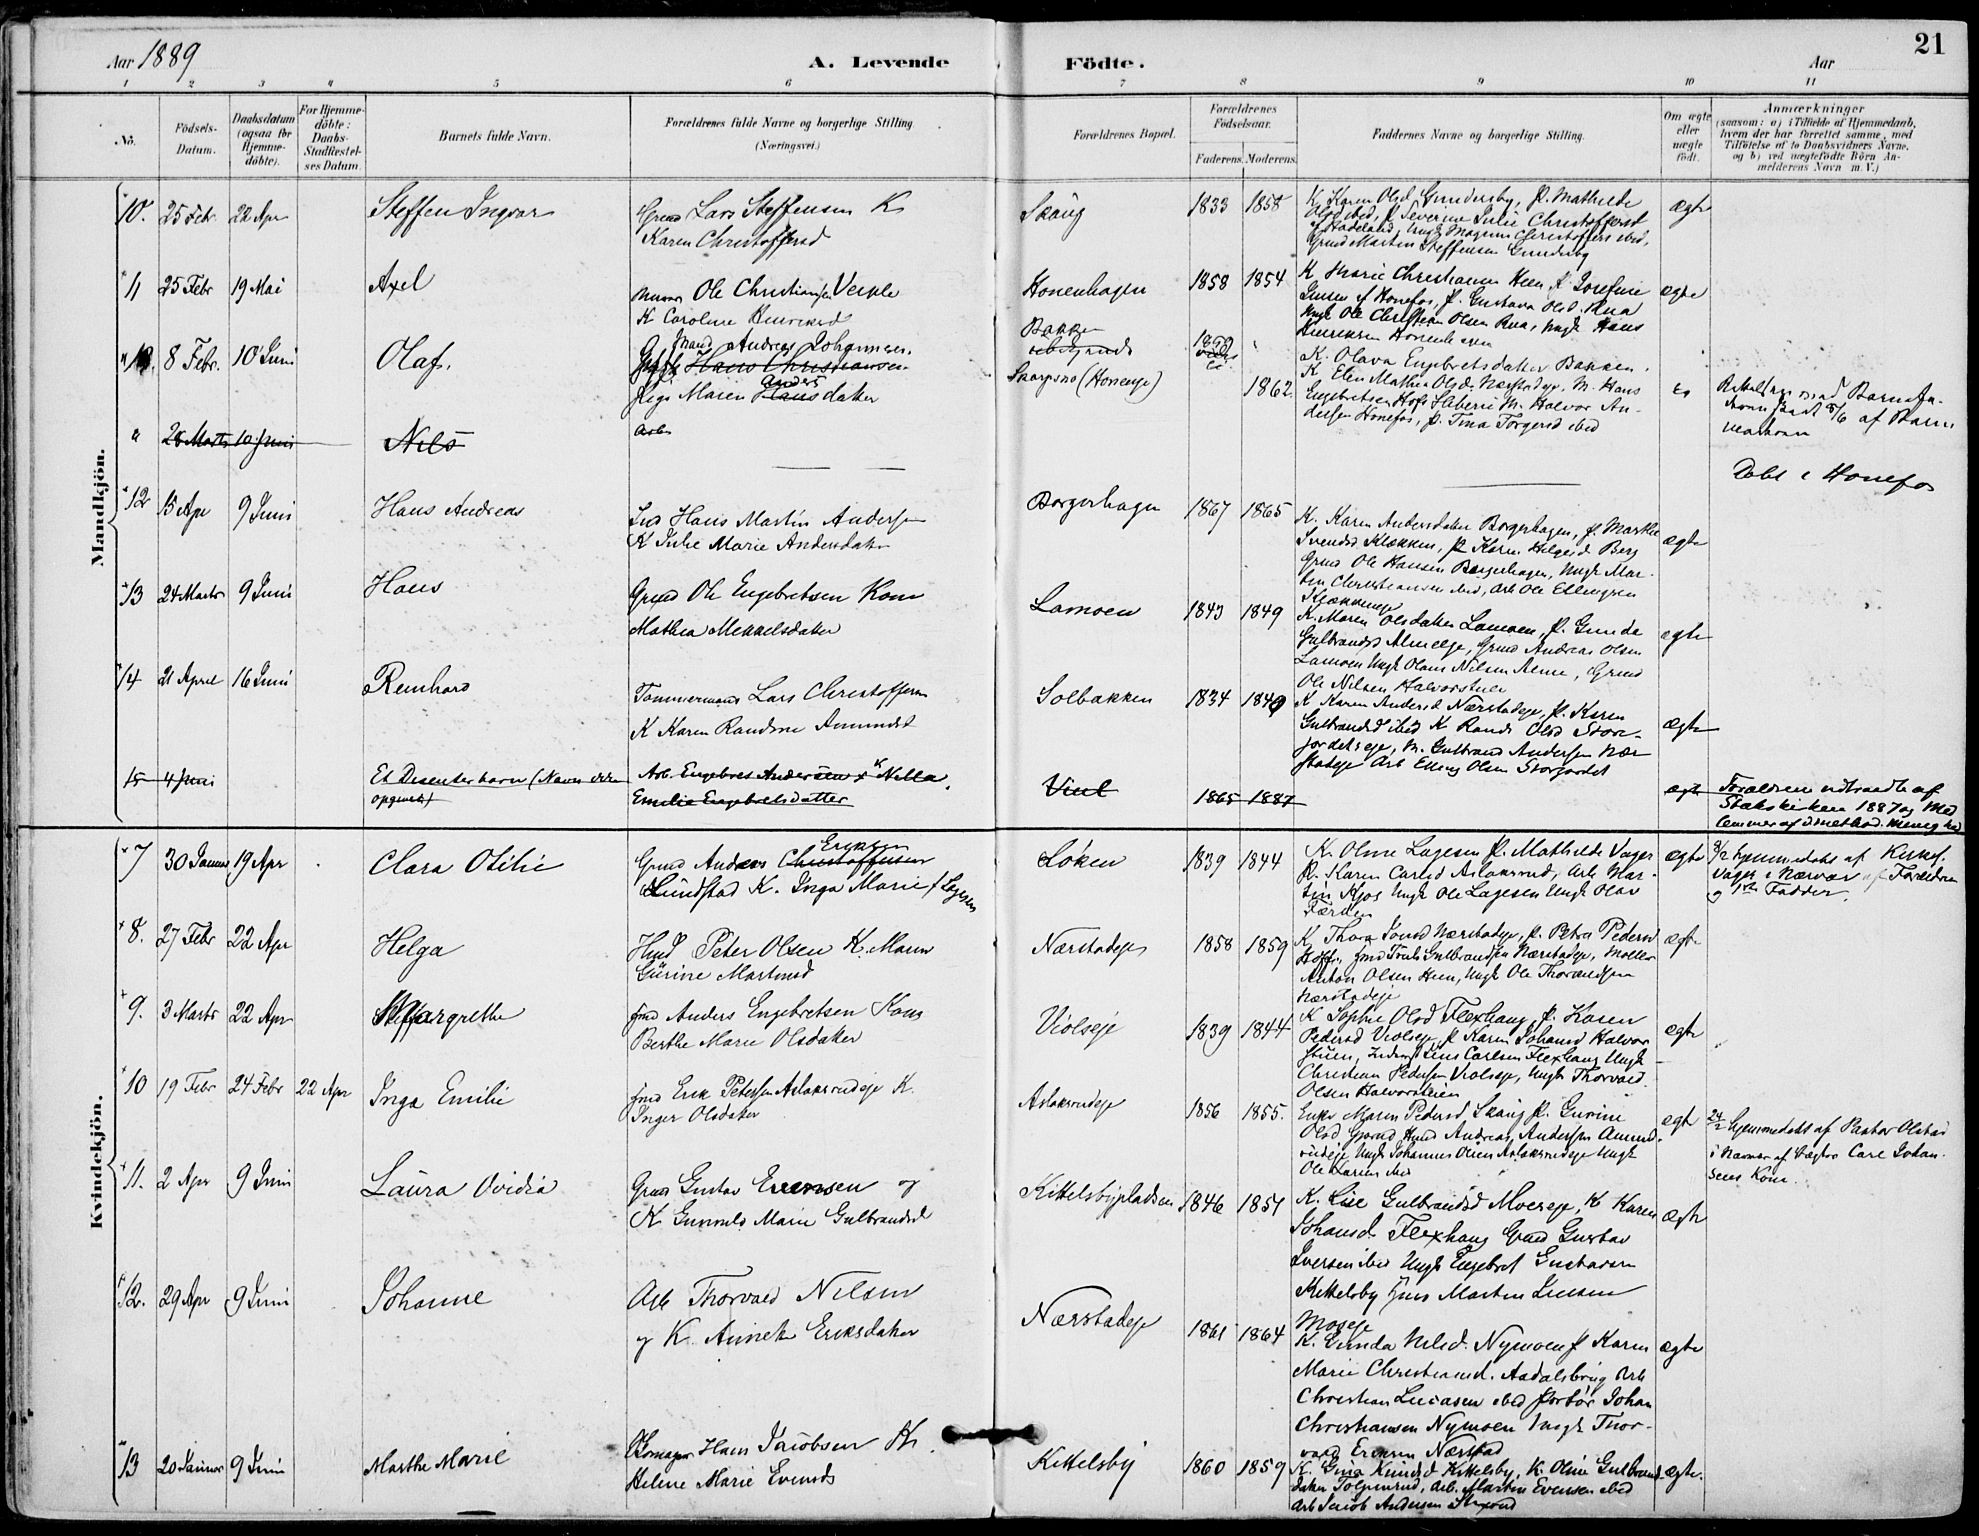 21
Aar 1889
A. Levende
Födte.
Aar
1 2 3 4 5 6 7 8 9 10 11
No.
Födsels-Datum.
Daabsdatum (ogsaa for Hjemme-döbte).
For Hjemme-döbte: Daabs-Stadfæstel-ses Datum.
Barnets fulde Navn.
Forældrenes fulde Navne og borgerlige Stilling
(Næringsvei.)
Forældrenes Bopæl.
Forældrenes Födselsaar.
Faderens. Moderens.
Faddernes Navne og borgerlige Stilling.
Om ægte eller uægte födt.
Anmærkninger
(saasom: a) i Tilfælde af Hjemmedaab,
hvem der har forrettet samme, med
Tilföielse af to Daabsvidners Navne.
og b) ved uægtefödte Börn An-
melderens Navn m. V.)
Mandkjön.
10. 25 Febr 22 Apr Steffen Ingvar Grmd Lars Steffensen K
Karen Christoffersd
Skaug 1833 1858
K. Karen Olsd Gundersby, P. Mathilde
Olsd ibid, P Severine Julie Christoffersd
Hadeland, Ungk Magnus Christoffers ibid,
Grmd Martin Steffensen Gundersby
ægte
11 25 Febr 19 Mai Axel Murer Ole Christiansen Veksle
K Caroline Henriksd
Honenhagen 1858 1854
K Marie Christiansen Heen P. Josefine
Honefos, P. Gustava Olsd. Rua
Ungk Ole Christian Olsen Rua, Ungk Hans
Henriksen Honenhagen
ægte
8 Febr. 10 Juni Olaf. Andreas Johannesen
Hans Christiansen
Pige Maren Anders Hansdatter
Bakken
Skarpsno (Honeneje) 1859 1862
K. Olava Engebretsdatter Bakken.
K Elen Mathea Olsd. Nærstadeje, M. Hans
Engebretsen Hofs M. Halvor An-
dersen Honefos, P. Tina Torgersd ibid
af Barne
28 Marts 10 Juni Nils Arb
Døbt i Honefos
12 15 Apr 9 Juni Hans Andreas Hans Martin Andersen
K Julie Marie Andersdatter
Borgerhagen 1867 1865
K. Karen Andersdatter Borgerhagen, P. Marthe
Svendsd Klækken, P Karen Helgesd Berg
Grmd Ole Hansen Borgerhagen, Ungk Mar-
tin Christiansen ibid, Arb Ole Ellingsen
Klækkeneje
ægte
13 24 Marts 9 Juni Hans Grmd Ole Engebretsen Kone
Mathea Mekkelsdatter
Lamoen 1843 1849
K. Maren Olsdatter Lamoen, P. Gunda
Gulbrandsd Almeeje, Grmd Andreas Olsen
Lamoen Ungk Olaus Nilsen Alme, Grmd
Ole Nilsen Halvorstuen
ægte
14 21 April 16 Juni Reinhard Tømmermand Lars Christoffersen
K Karen Randine Amundsd
Solbakken 1834 1849
K Karen Andersd Nærstadeje, P. Karen
Gulbrandsd ibid K Randi Olsd Stor-
jordetseje, M. Gulbrand Andersen Nær-
stadeje Arb Elling Olsen Storjordet
ægte
15 4 Juni Et Disenterbarn (Navn ikke
opgivet) Arb. Engebret Andersen & Nilla
Emilie Engebretsdatter
Viul 1865 1887
ægte
Forældrene udtraadte af
Statskirken 1887 og Med
lemmer af Method. Menighed
Kvindekjön.
7 30 Januar 19 Apr Clara Otilie Grmd Anders Eriksen Christoffersen
Lundstad K. Inga Marie Lagesen
Løken 1839 1844
K. Oline Lagesen P. Mathilde Vager
P. Karen Carlsd Aslaksrud, Arb Mar-
tin Hjos Ungk Ole Lagesen Ungk Olav
Færden
ægte
3/2 hjemmedøbt af Kirkes.
Vager i Nærvær af Forældrene
og 1ste Fadder.
8. 27 Febr 22 Apr Helga Hmd Peter Olsen K. Maren
Gurine Martinsd
Nærstadeje 1858 1859
K Thora Jonsd Nærstadeje, P. Petra Pedersd
Hofs, Grmd Truls Gulbrandsen Nærstadeje, Møller
Anton Olsen Heen, Ungk Ole Thorvaldsen
Nærstadeje
ægte
9. 3 Marts 22 Apr Margrethe Grmd Anders Engebretsen Kone
Berthe Marie Olsdatter
Violseje 1839 1844
K Sophie Olsd Flexhaug, P. Karen
Pedersd Violseje P Karen Johansd Halvor
stuen, Inderst Lins Carlsen Flexhaug Ungk
Christian Pedersen Violseje, Ungk Thorvald
Olsen Halvorstuen
ægte
10 19 Febr 24 Febr 22 Apr Inga Emilie Grmd Erik Petersen Aslaksrudeje K.
Inger Olsdatter
Aslaksrudeje 1856 1855.
Enke Maren Pedersd Skaug P. Gurine
Olsd Hmd Andreas Andersen Amund-
rudeje Ungk Johannes Olsen Aslaksrudeje Ungk
Ole Larsen ibid
ægte
24/2 hjemmedøbt af Pastor Olstad
i Nærvær af Carl Johan-
sens Kone.
11. 2 Apr 9 Juni Laura Ovidia Grmd Gustav Evensen og
K Gunnild Marie Gulbrandsd
Kittelsbypladsen 1846 1851
K. Lise Gulbrandsd Moereje, K Karen
Johansd Flexhaug Grmd Gustav
Iversen ibid Ungk Engebret Gustavsen
Kittelsby Martin Larsen
Moseje
ægte
12. 29 Apr 9 Juni Johanne Arb Thorvald Nilsen
og K. Annette Eriksdatter
Nærstadeje 1861 1864
K. Gunda Nilsd. Nymoen P Karen
Marie Christiansd. Aadalsbrug Arb
Christian Lucasen ibid Johan
Christiansen Nymoen Ungk Thor-
vald Eriksen Nærstad
ægte
13 20 Januar 9 Juni Marthe Marie Skomager Hans Jacobsen K.
Helene Marie Evensd
Kittelsby 1860 1859
K. Gina Knudsd Kittelsby, K. Oline Gulbrands-
datter Tolpinrud, Arb. Martin Evensen ibid
Arb Jacob Andersen
ægte.